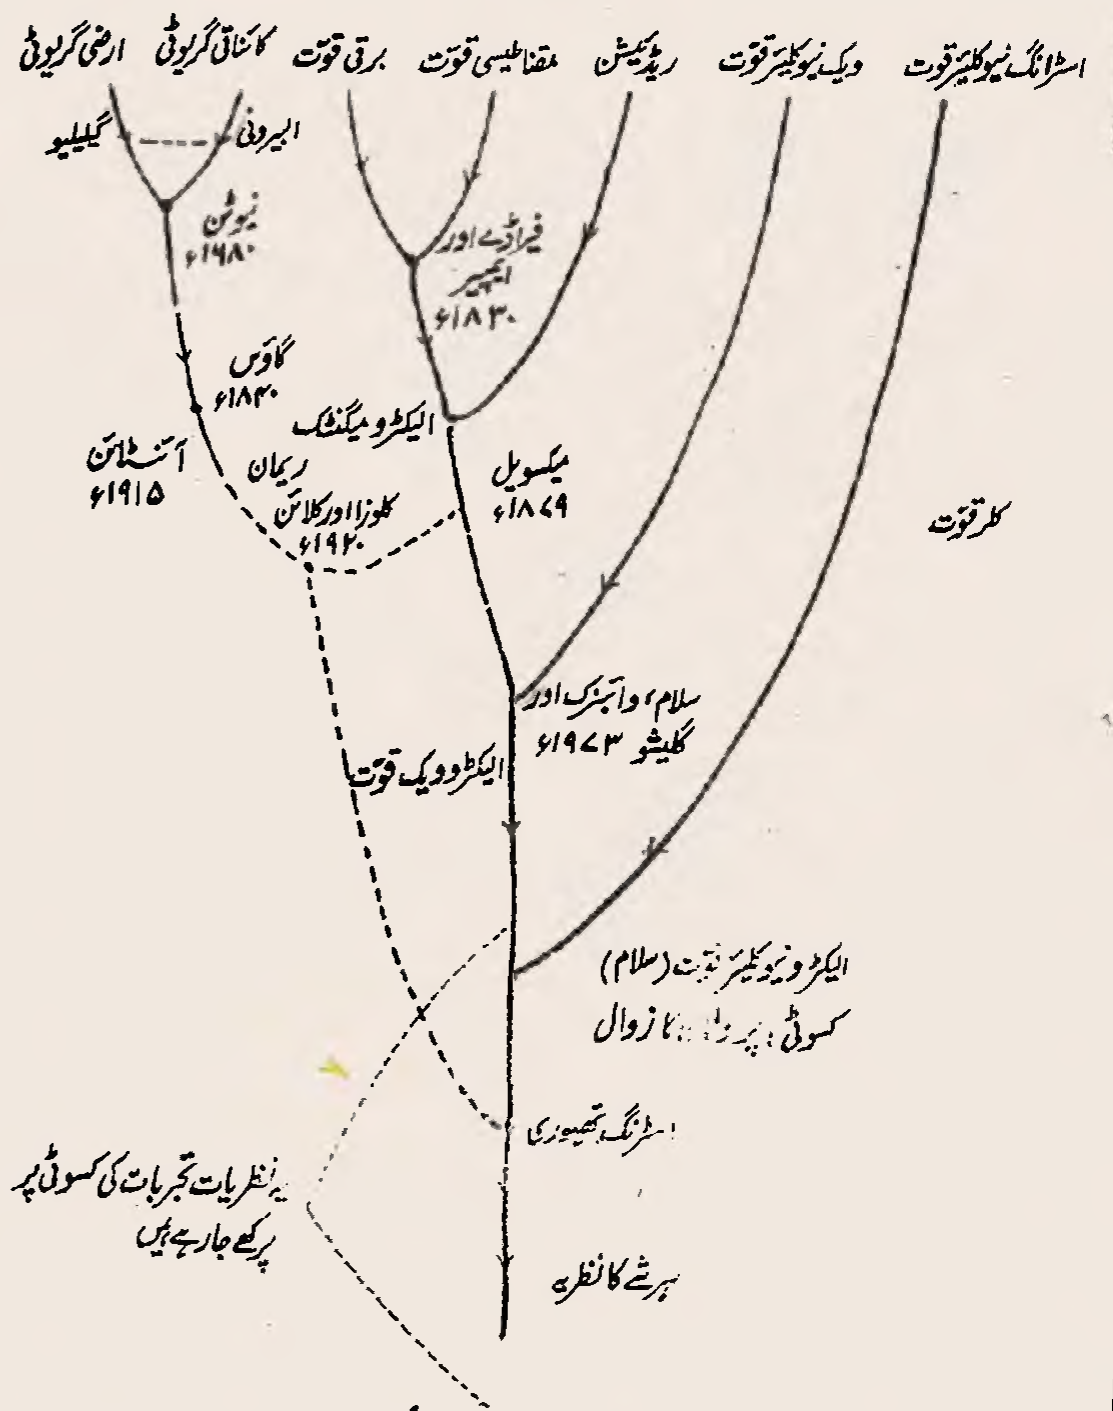 اسٹرانگ نیوکلیئر قوت
ویک نیوکلیئر قوت
ریڈیئیشن
مقناطیسی قوت
برقی قوت
کائناتی گریوٹی
ارضی گریوٹی
البیرونی
گیلیلیو
نیوٹن
۱۶۸۰ء
فیراڈے اور
ایمپیر
۱۸۳۰ء
گاؤس
۱۸۴۰ء
الیکٹرو میگنٹک
میکسویل
۱۸۷۹ء
ریمان
آئنسٹائن
۱۹۱۵ء
کلوزا اور کلائن
۱۹۲۰ء
کلر قوت
سلام، وائنبرگ اور
گلیشو ۱۹۷۳ء
الیکٹرو ویک قوت
الیکٹرو نیوکلیئر قوت (سلام)
کسوٹی: کا زوال
اسٹرنگ تھیوری
یہ نظریات تجربات کی کسوٹی پر
پرکھے جا رہے ہیں
ہر شے کا نظریہ